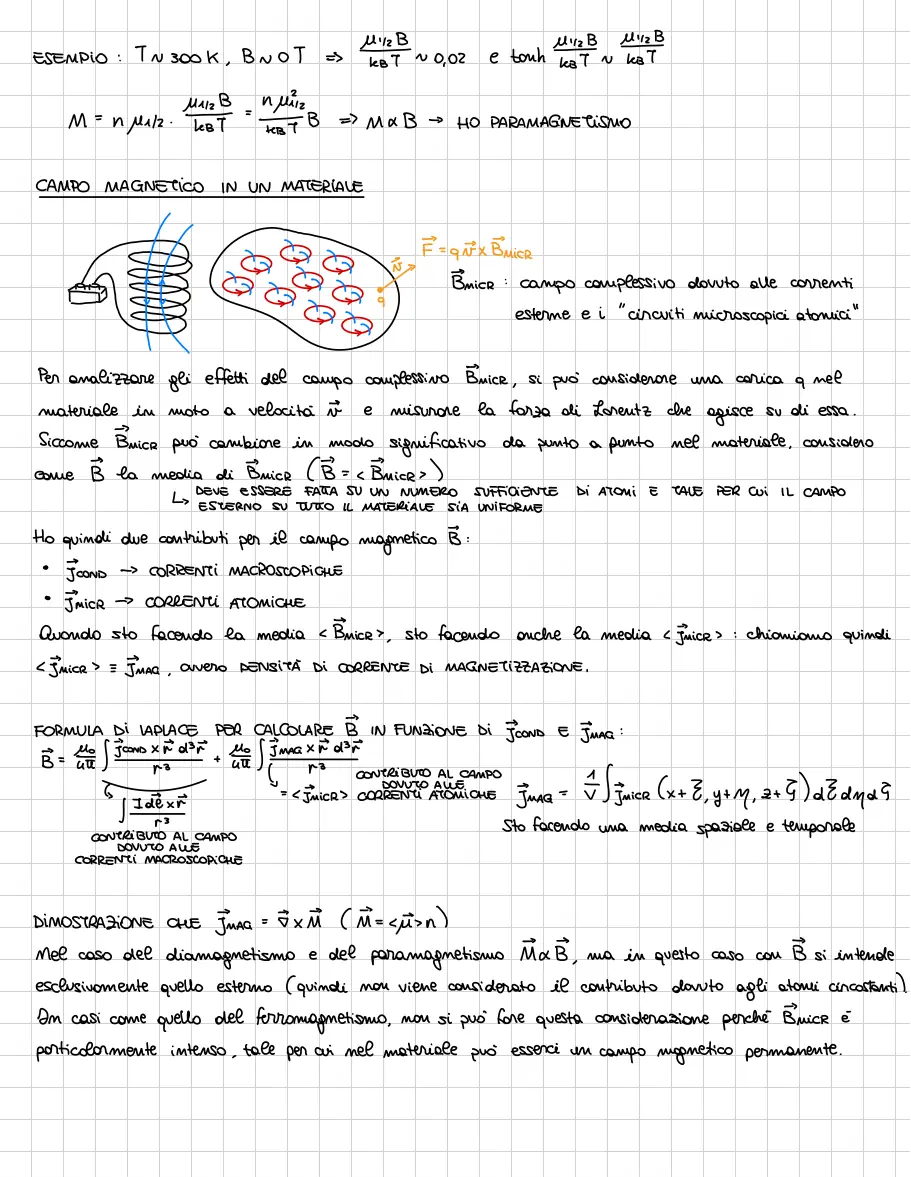 ESEMPIO : T ~ 300 K , B ~ 0 T => μ1/2 B / kB T ~ 0,02 e tanh μ1/2 B / kB T ~ μ1/2 B / kB T
M = n μ1/2 · μ1/2 B / kB T = n μ²1/2 / kB T B => M ∝ B → HO PARAMAGNETISMO
CAMPO MAGNETICO IN UN MATERIALE
F⃗ = q v⃗ x B⃗MICR
v⃗
q
B⃗MICR : campo complessivo dovuto alle correnti
esterne e i "circuiti microscopici atomici"
Per analizzare gli effetti del campo complessivo B⃗MICR, si può considerare una carica q nel
materiale in moto a velocità v⃗ e misurare la forza di Lorentz che agisce su di essa.
Siccome B⃗MICR può cambiare in modo significativo da punto a punto nel materiale, considero
come B⃗ la media di B⃗MICR ( B⃗ = < B⃗MICR > )
↳ DEVE ESSERE FATTA SU UN NUMERO SUFFICIENTE DI ATOMI E TALE PER CUI IL CAMPO
ESTERNO SU TUTTO IL MATERIALE SIA UNIFORME
Ho quindi due contributi per il campo magnetico B⃗ :
• j⃗COND → CORRENTI MACROSCOPICHE
• j⃗MICR → CORRENTI ATOMICHE
Quando sto facendo la media < B⃗MICR >, sto facendo anche la media < j⃗MICR > : chiamiamo quindi
< j⃗MICR > ≡ j⃗MAG , ovvero DENSITÀ DI CORRENTE DI MAGNETIZZAZIONE.
FORMULA DI LAPLACE PER CALCOLARE B⃗ IN FUNZIONE DI j⃗COND E j⃗MAG :
B⃗ = μ0/4π ∫ j⃗COND x r⃗ d³r⃗ / r³ + μ0/4π ∫ j⃗MAG x r⃗ d³r⃗ / r³
= < j⃗MICR > CONTRIBUTO AL CAMPO
DOVUTO ALLE
CORRENTI ATOMICHE
j⃗MAG = 1/V ∫ j⃗MICR (x+ξ, y+η, z+ζ) dξ dη dζ
Sto facendo una media spaziale e temporale
∫ I dl⃗ x r⃗ / r³
CONTRIBUTO AL CAMPO
DOVUTO ALLE
CORRENTI MACROSCOPICHE
DIMOSTRAZIONE CHE j⃗MAG = ∇⃗ x M⃗ ( M⃗ = < μ⃗ > n )
Nel caso del diamagnetismo e del paramagnetismo M⃗ ∝ B⃗, ma in questo caso con B⃗ si intende
esclusivamente quello esterno (quindi non viene considerato il contributo dovuto agli atomi circostanti)
In casi come quello del ferromagnetismo, non si può fare questa considerazione perché B⃗MICR è
particolarmente intenso, tale per cui nel materiale può esserci un campo magnetico permanente.